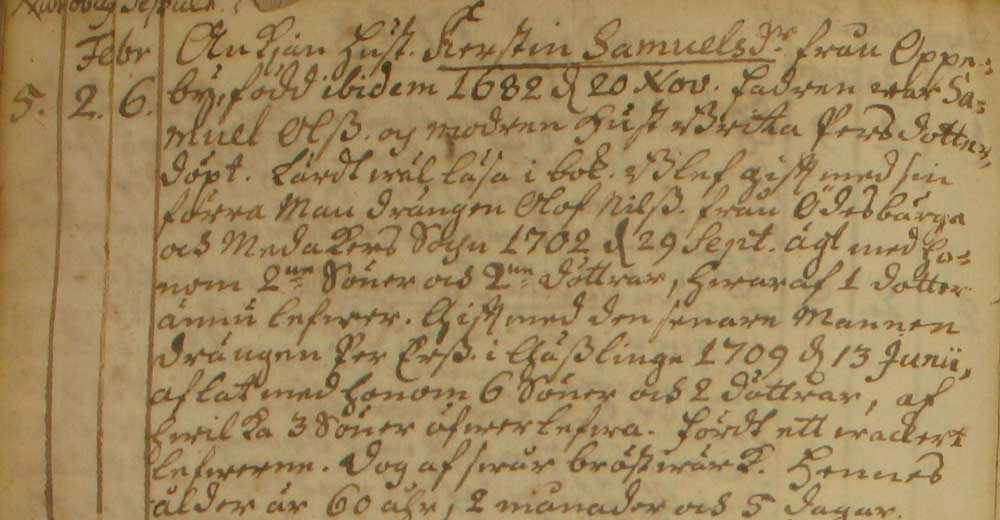 Febr Änkian Hust. Kerstin Samuelsdr. från Oppe-
5. 2. 6. by, född ibidem 1682 d 20 Nov. Fadren war Sa-
muel Olss. och modren Hust Brita Persdotter,
döpt. Lärdt wäl läsa i bok. Blef gift med sin
förra Man drängen Olof Nilss. från Ödesbärga
och Medåkers Sokn 1702 d 29 Sept. ägt med ho-
nom 2ne Söner och 2ne döttrar, hwaraf 1 dotter
ännu lefwer. Gift med den senare Mannen
drängen Per Erss. i Gässlinge 1709 d 13 Junii,
aflat med honom 6 Söner och 2 döttrar, af
hwilka 3 Söner öfwerlefwa. Fördt ett wackert
lefwerne. Dog af swår bröstwärk. Hennes
ålder är 60 åhr, 2 månader och 5 dagar.